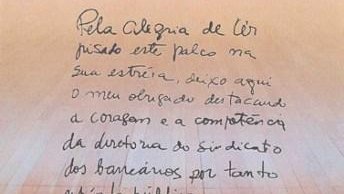 Pela alegria de ter
pisado este palco na
sua estréia, deixo aqui
o meu obrigado destacando
a coragem e a competência
da diretoria do sindicato
dos bancários por tanto